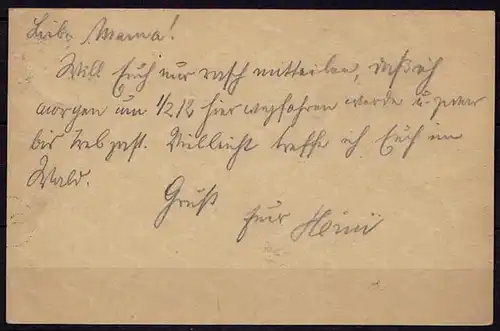 Liebe Mama!
Will Euch nur rasch mitteilen, daß ich
morgen um 1/2 12 hier wegfahren werde u. zwar
bis. Vielleicht treffe ich Euch im
Wald.
Gruß
Euer Heini